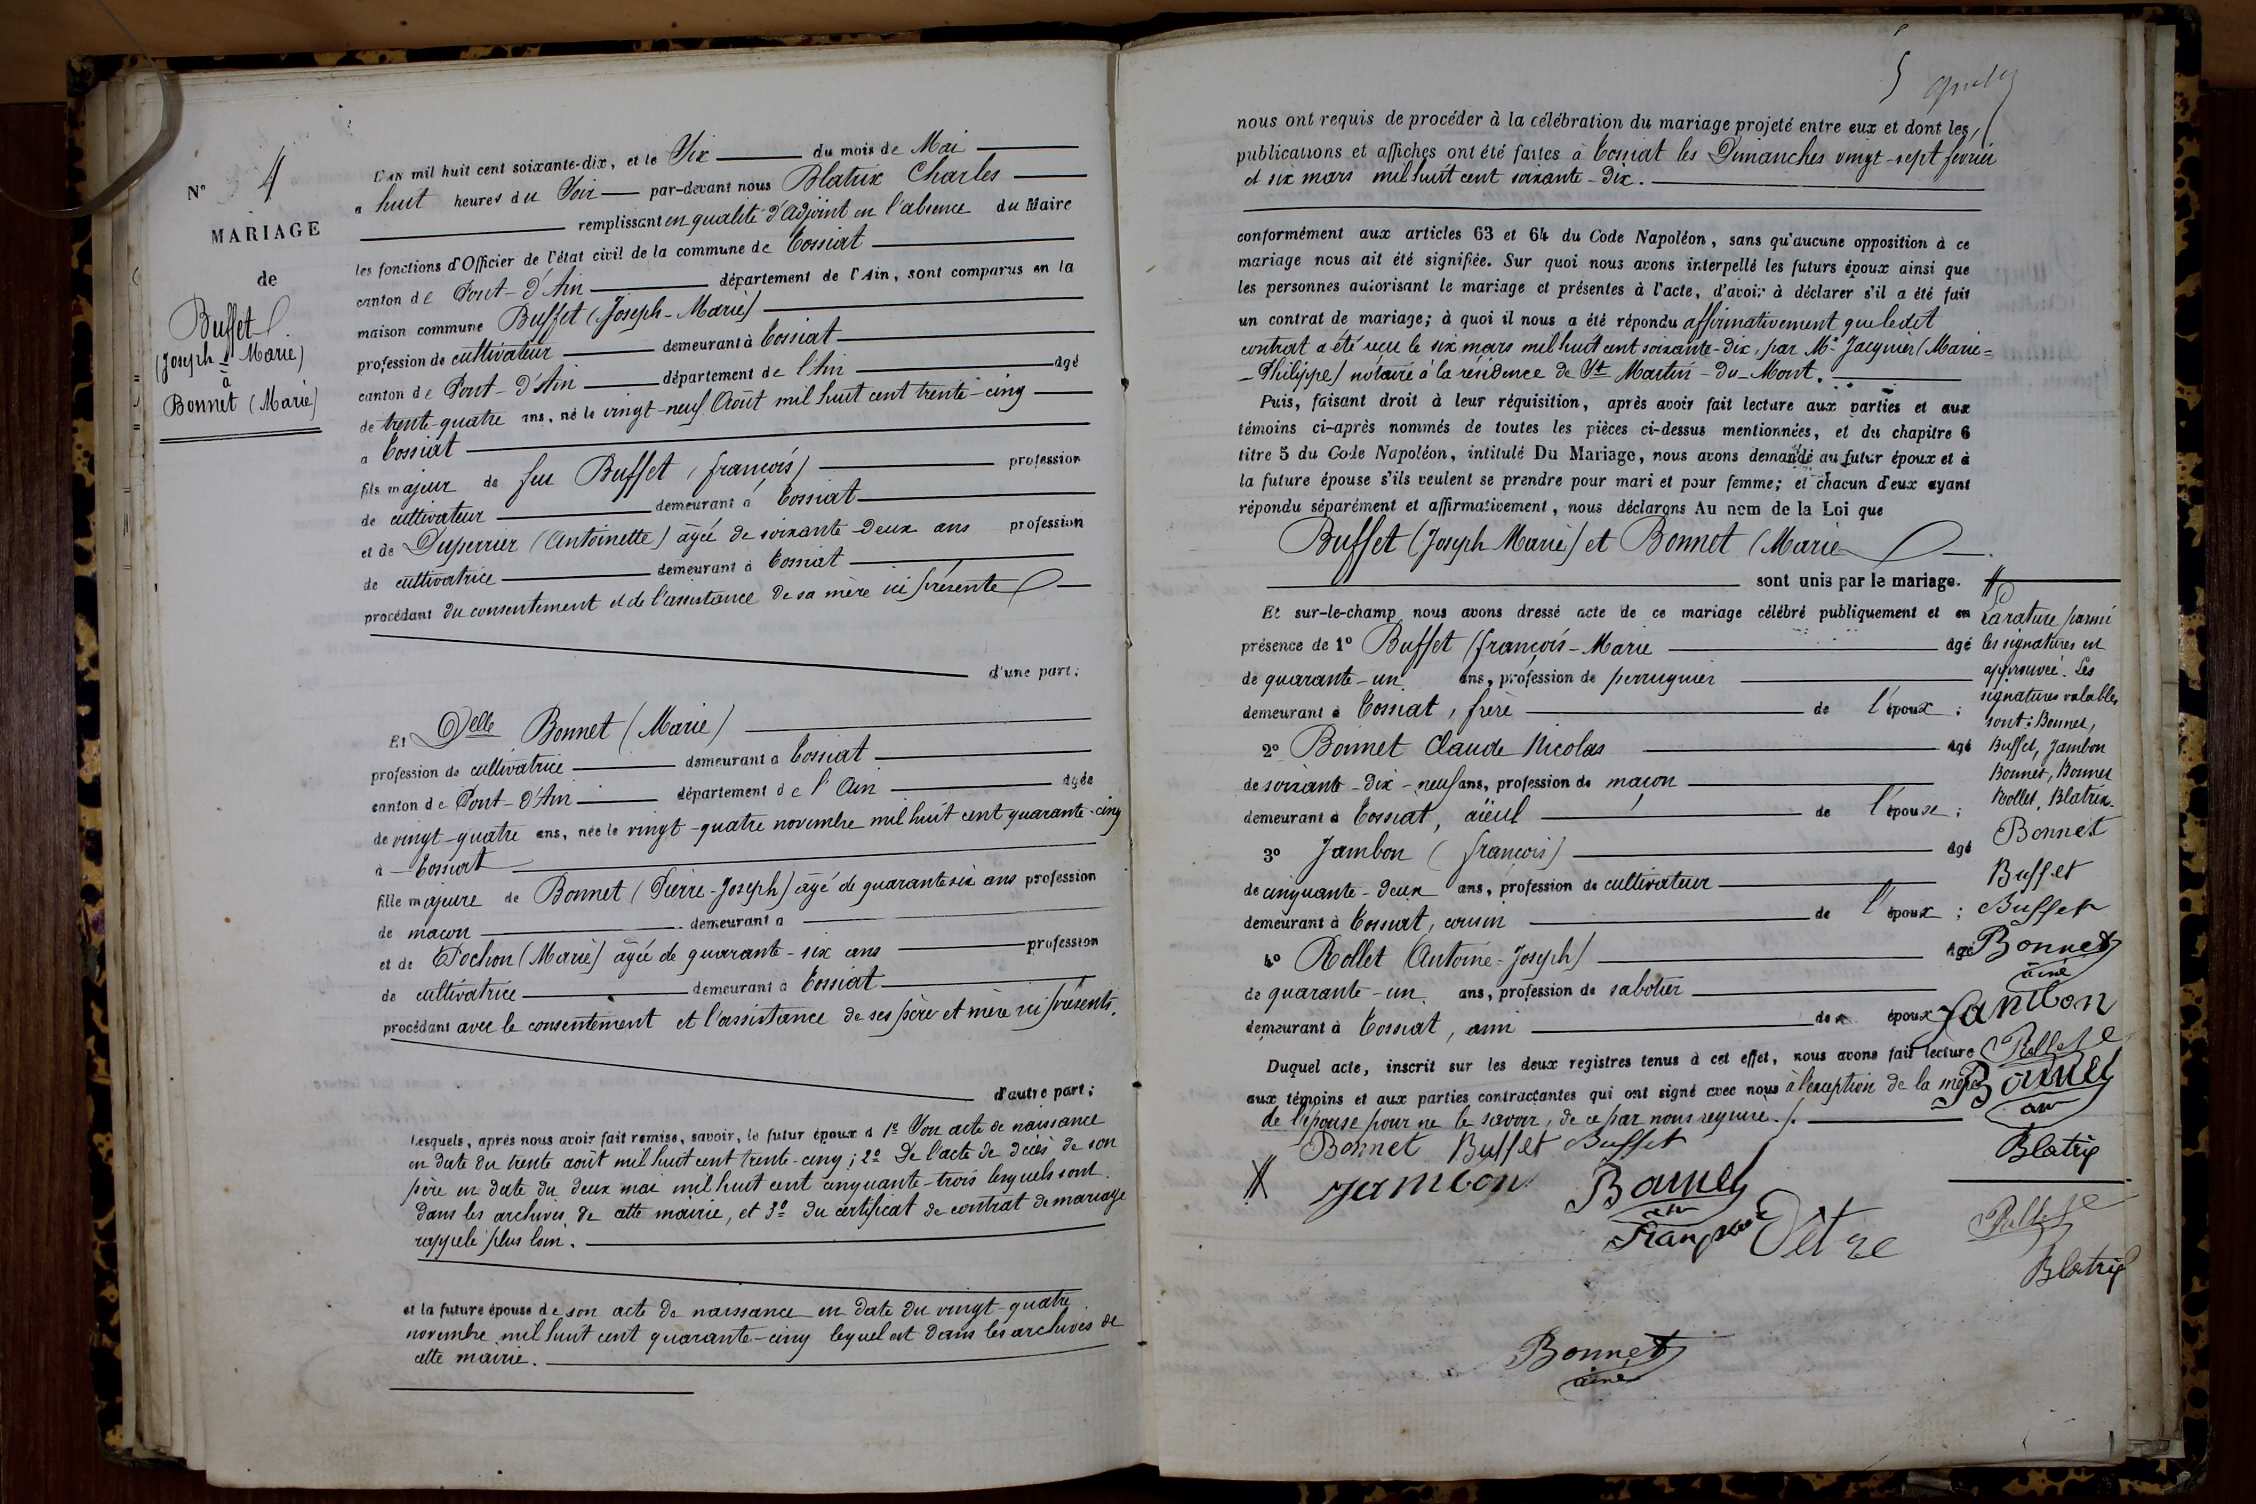 N° 4
MARIAGE
de
Buffet
(Joseph-Marie)
à
Bonnet (Marie)
L'an mil huit cent soixante-dix, et le Six du mois de Mai
a huit heures du Soir par-devant nous Blatrix Charles
remplissant en qualité d'Adjoint en l'absence du Maire
les fonctions d'Officier de l'état civil de la commune de Tossiat
canton de Pont-d'Ain département de l'Ain, sont comparus en la
maison commune Buffet (Joseph-Marie)
profession de cultivateur demeurant à Tossiat
canton de Pont-d'Ain département de l'Ain âgé
de trente-quatre ans, né le vingt-neuf Août mil huit cent trente-cinq
a Tossiat
fils majeur de feu Buffet (françois) profession
de cultivateur demeurant à Tossiat
et de Duperrier (Antoinette) âgée de soixante-deux ans profession
de cultivatrice demeurant à Tossiat
procédant du consentement et de l'assistance de sa mère ici présente
d'une part;
Et Delle Bonnet (Marie)
profession de cultivatrice demeurant a Tossiat
canton de Pont-d'Ain département de l'Ain âgée
de vingt-quatre ans, née le vingt-quatre novembre mil huit cent quarante-cinq
à Tossiat
fille majeure de Bonnet (Pierre-Joseph) âgé de quarante six ans profession
de maçon demeurant a
et de Pochon (Marie) âgée de quarante-six ans profession
de cultivatrice demeurant à Tossiat
procédant avec le consentement et l'assistance de ses père et mère ici présents.
d'autre part;
Lesquels, après nous avoir fait remise, savoir, le futur époux a 1° Son acte de naissance
en date du trente août mil huit cent trente-cinq; 2° De l'acte de décès de son
père en date du deux mai mil huit cent cinquante-trois lesquels sont
dans les archives de cette mairie, et 3° du certificat de contrat de mariage
rappelé plus loin.
et la future épouse de son acte de naissance en date du vingt-quatre
novembre mil huit cent quarante-cinq lequel est dans les archives de
cette mairie.
5
nous ont requis de procéder à la célébration du mariage projeté entre eux et dont les
publications et affiches ont été faites à Tossiat les Dimanches vingt-sept février
et six mars mil huit cent soixante-dix.
conformément aux articles 63 et 64 du Code Napoléon, sans qu'aucune opposition à ce
mariage nous ait été signifiée. Sur quoi nous avons interpellé les futurs époux ainsi que
les personnes autorisant le mariage et présentes à l'acte, d'avoir à déclarer s'il a été fait
un contrat de mariage; à quoi il nous a été répondu affirmativement que ledit
contrat a été reçu le six mars mil huit cent soixante-dix, par Me Jacquier (Marie=
-Philippe) notaire à la résidence de St Martin-du-Mont.
Puis, faisant droit à leur réquisition, après avoir fait lecture aux parties et aux
témoins ci-après nommés de toutes les pièces ci-dessus mentionnées, et du chapitre 6
titre 5 du Code Napoléon, intitulé Du Mariage, nous avons demandé au futur époux et à
la future épouse s'ils veulent se prendre pour mari et pour femme; et chacun d'eux ayant
répondu séparément et affirmativement, nous déclarons Au nom de la Loi que
Buffet (Joseph Marie) et Bonnet (Marie
sont unis par le mariage.
Et sur-le-champ nous avons dressé acte de ce mariage célébré publiquement et en
présence de 1° Buffet (françois-Marie âgé
de quarante-un ans, profession de perruquier
demeurant à Tossiat, frère de l'époux;
2° Bonnet Claude Nicolas âgé
de soixante-dix-neuf ans, profession de maçon
demeurant à Tossiat, aïeul de l'épouse;
3° Jambon (françois) âgé
de cinquante-deux ans, profession de cultivateur
demeurant à Tossiat, cousin de l'époux;
4° Rollet (Antoine-Joseph) âgé
de quarante-un ans, profession de sabotier
demeurant à Tossiat, ami des époux
Duquel acte, inscrit sur les deux registres tenus à cet effet, nous avons fait lecture
aux témoins et aux parties contractantes qui ont signé avec nous à l'exception de la mère
de l'épouse pour ne le savoir, de ce par nous requise.
Bonnet Buffet Buffet
Jambon Bonnet
François
Bonnet
ainé
La rature parmi
les signatures est
approuvée. Les
signatures valables
sont: Bonnet,
Buffet, Jambon
Bonnet, Bonnet
Rollet, Blatrix.
Bonnet
Buffet
Buffet
Bonnet
ainé
Jambon
Rollet
Bonnet
Blatrix
Rollet
Blatrix